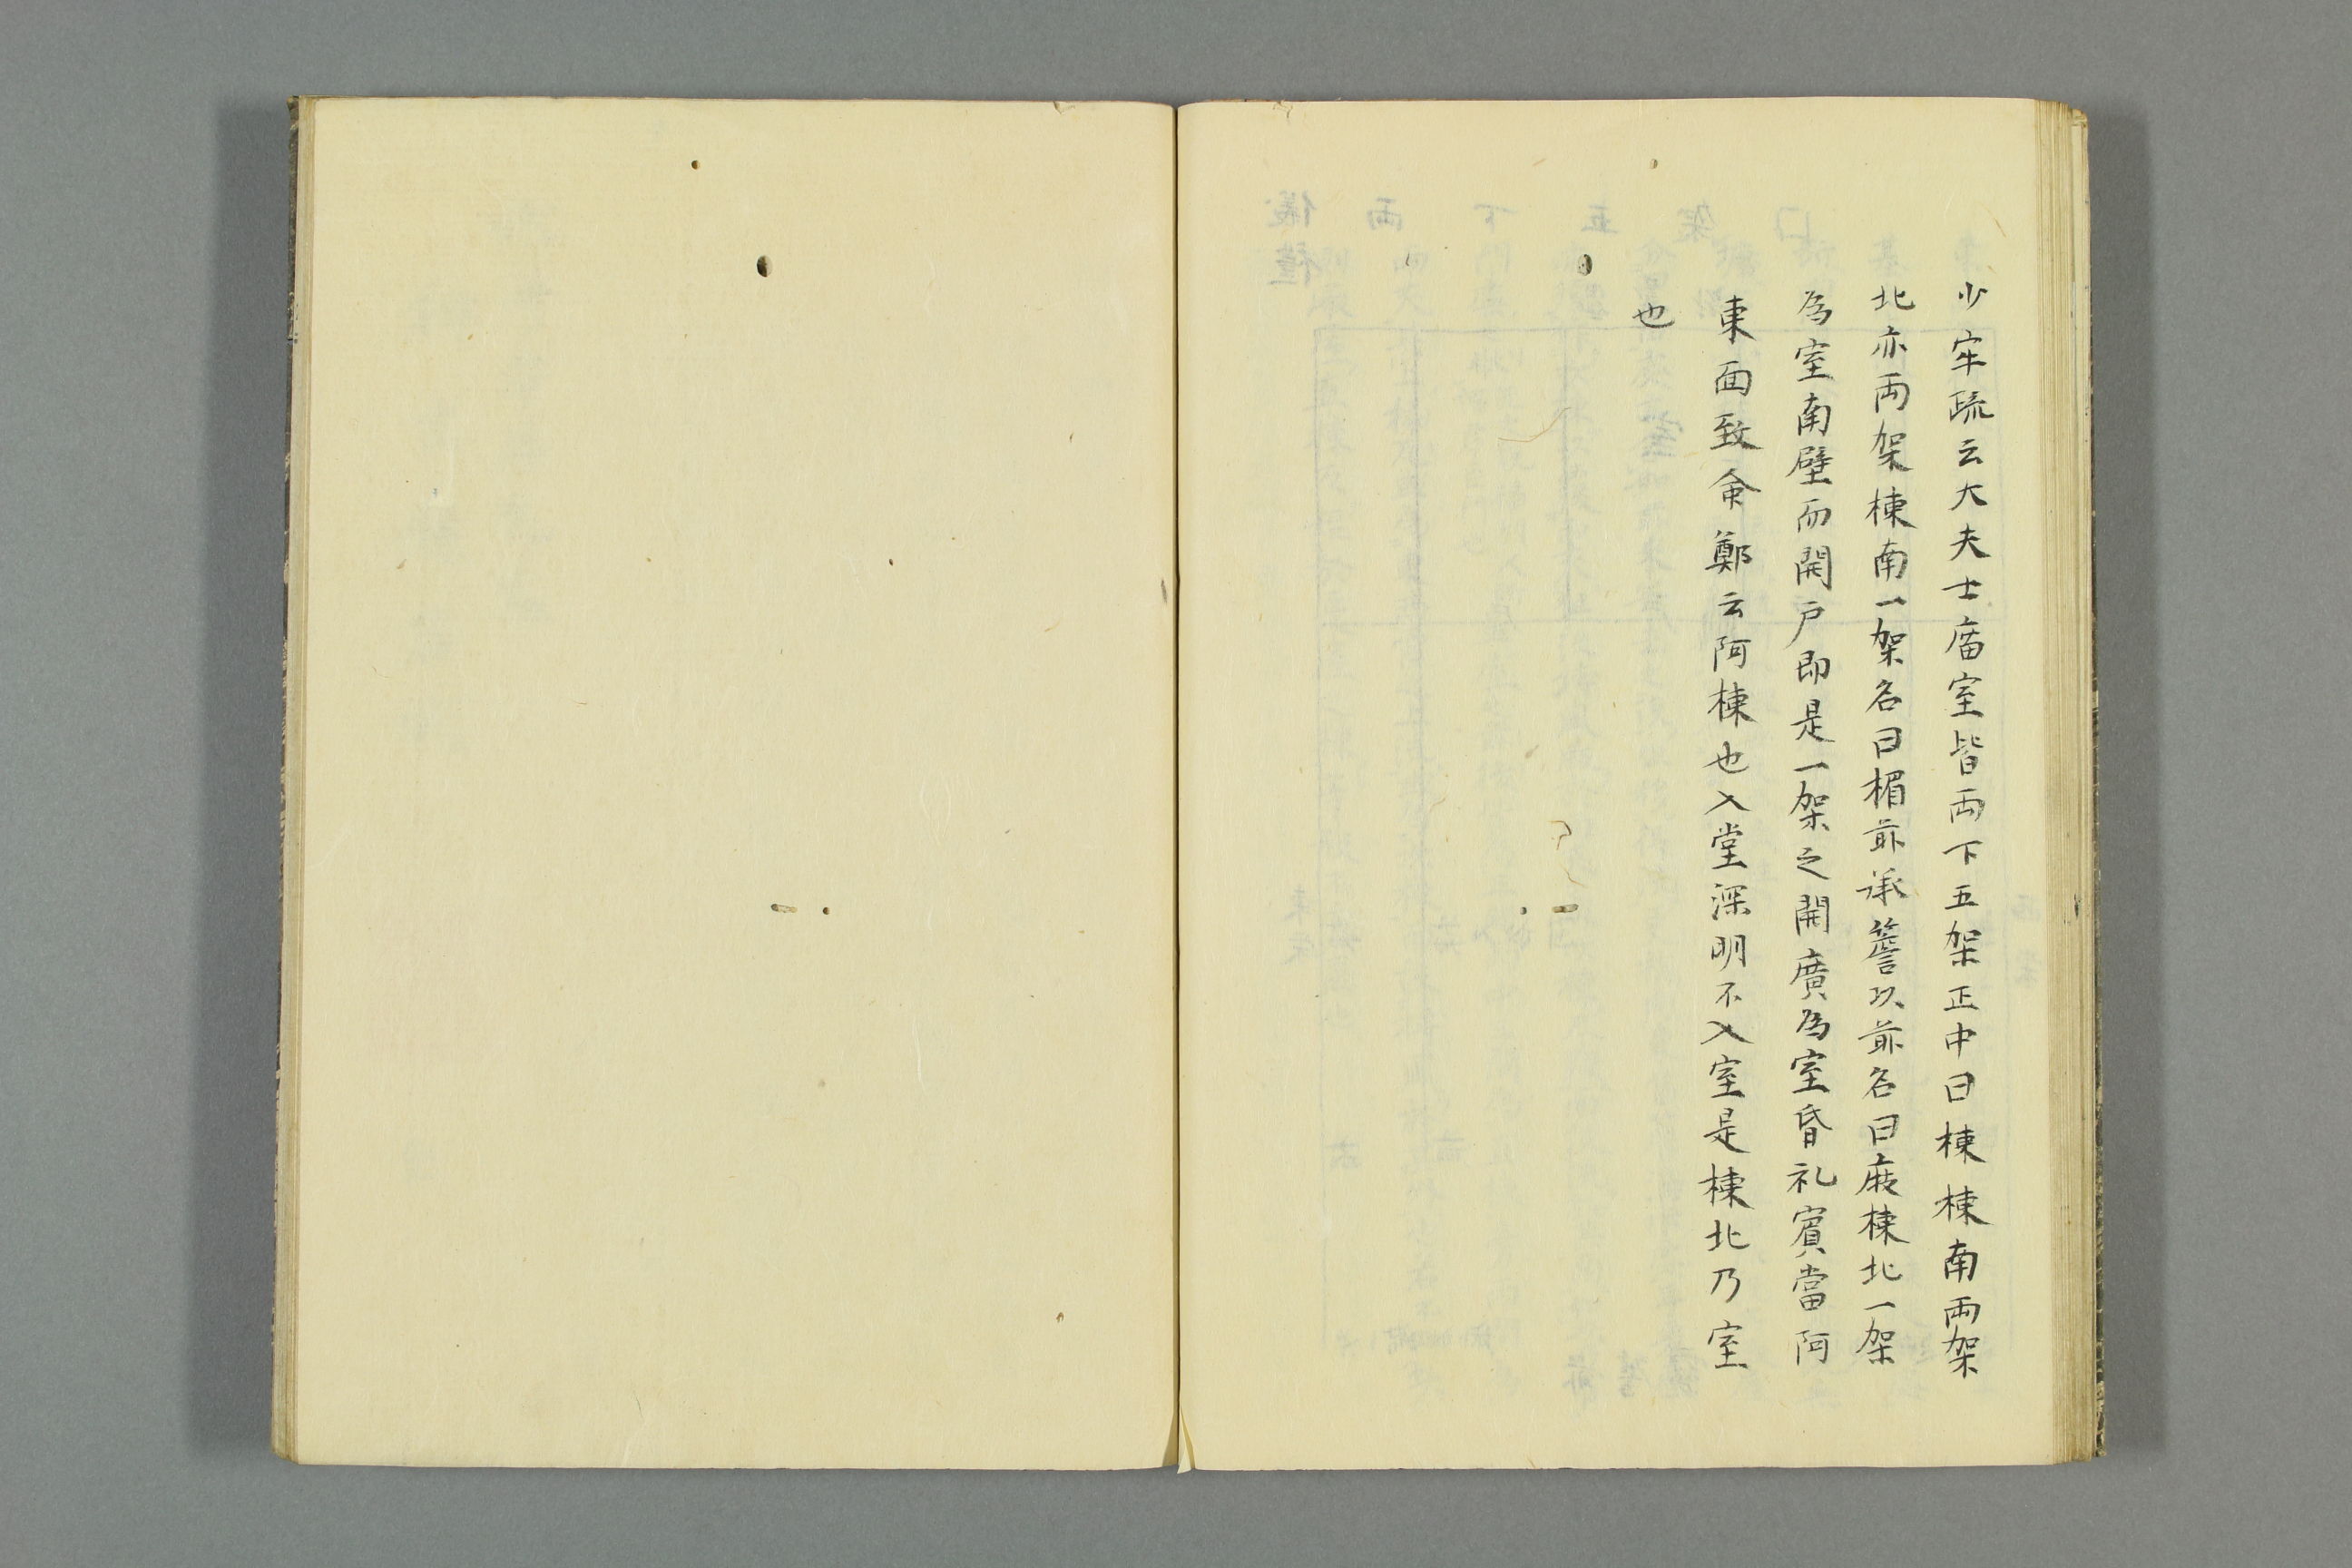 少牢疏云大夫士庿室皆両下五架正中曰棟棟南両架
北亦両架棟南一架名曰楣前承簷以前名曰庪棟北一架
為室南壁而開戸即是一架之開廣為室昏礼賓當阿
東面致命鄭云阿棟也入堂深明不入室是棟北乃室
也